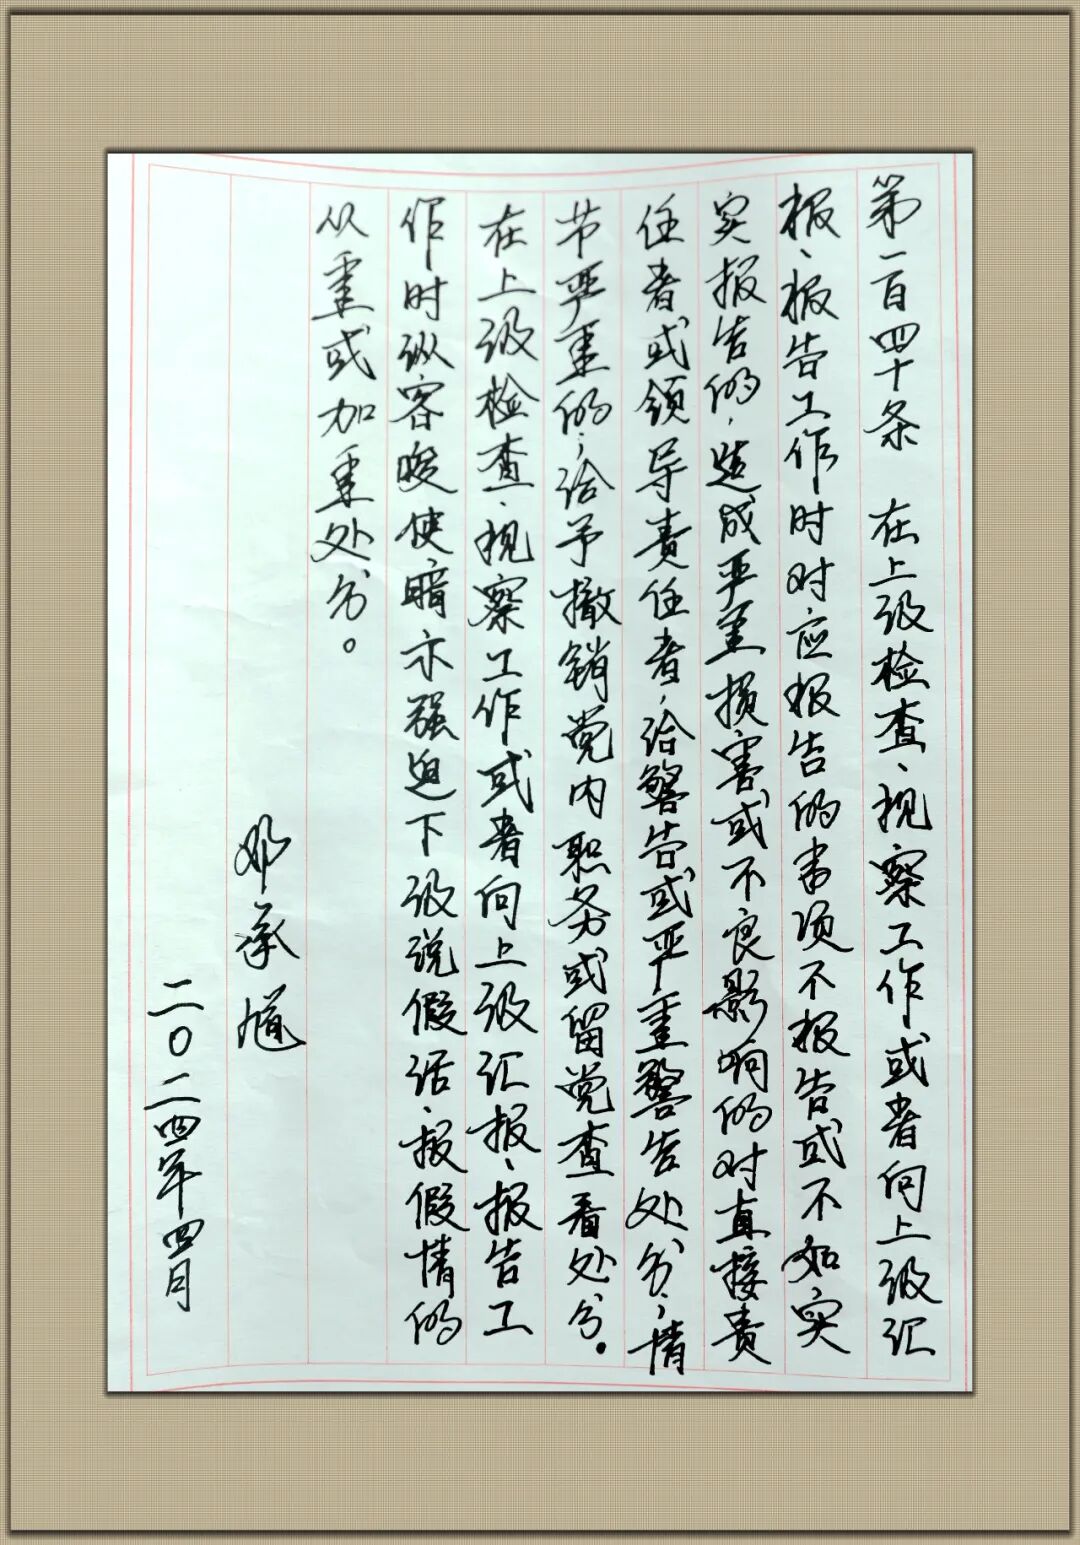 第一百四十条 在上级检查、视察工作或者向上级汇
报、报告工作时对应报告的事项不报告或不如实
实报告的，造成严重损害或不良影响的对直接责
任者或领导责任者，给警告或严重警告处分；情
节严重的，给予撤销党内职务或留党查看处分。
在上级检查、视察工作或者向上级汇报、报告工
作时纵容唆使暗示强迫下级说假话、报假情的
从重或加重处分。
邓承
二〇二四年四月